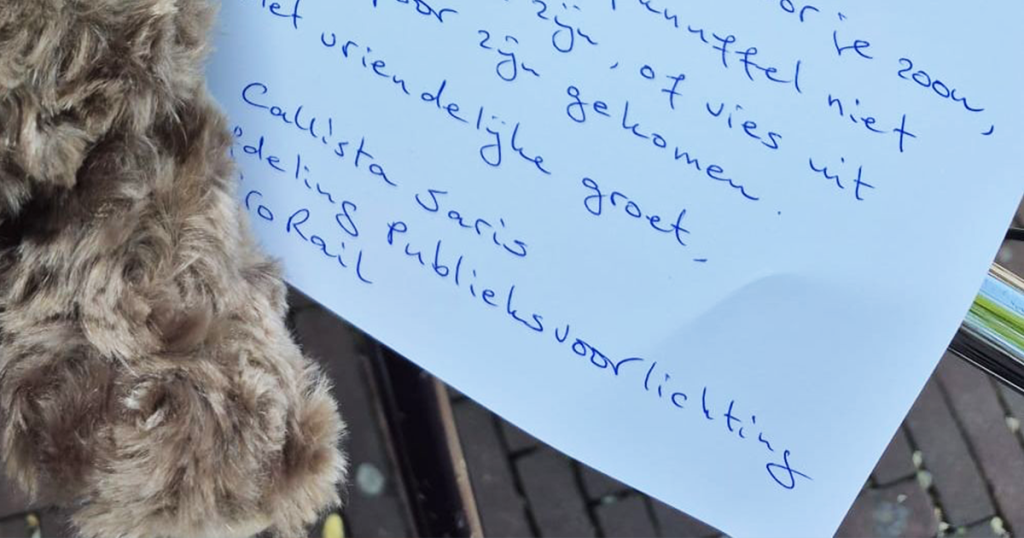 or je zoon,
knuffel niet
zijn, of vies uit
oor zijn gekomen.
et vriendelijke groet,
Callista Saris
deling Publieksvoorlichting
roRail